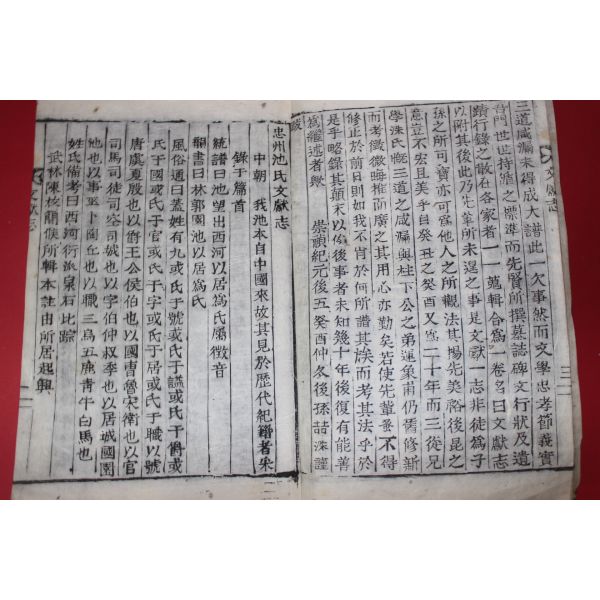 三道咸漏未得成大譜此一欠事然而文學忠孝節義實
吾門世世持循之標準而先賢所撰墓誌碑文行狀及遺
蹟行錄之散在各家者一一蒐輯合爲一卷名曰文獻志
以附其後此乃先輩所未遑之事是文獻一志非徒爲子
孫之所可寶亦可爲他人之所觀法其揚先美裕後昆之
意豈不宏且美乎自癸丑之癸酉又爲二十年而三從兄
學洙氏慨三道之咸漏與柱下公之弟運象甫仍儒修新
而考徵微晦推而廣之其用心亦勤矣若使先輩蚤不得
修正於前日則如我不肖於何所譜其族而考其法乎於
是乎略錄其顚末以俟後事者未知幾十年後復有能善
爲繼述者歟
崇禎紀元後五癸酉仲冬後孫喆洙謹
跋
文獻志
三
忠州池氏文獻志
中朝 我池本自中國來故其見於歷代紀籍者采
錄于篇首
統譜曰池望出西河以居爲氏屬徵音
韻書曰林郭園池以居爲氏
風俗通曰蓋姓有九或氏于號或氏于謚或氏于爵或
氏于國或氏于官或氏于字或氏于居或氏于職以號
唐虞夏殷也以爵王公侯伯也以國曹魯宋衛也以官
司馬司徒司空司城也以字伯仲叔季也以居城國園
池也以事巫卜陶匠也以職三烏五鹿靑牛白馬也
姓氏備考曰西河衍派泉石比踪
武林陳枚簡侯所輯本註由所居起興
文獻志
一